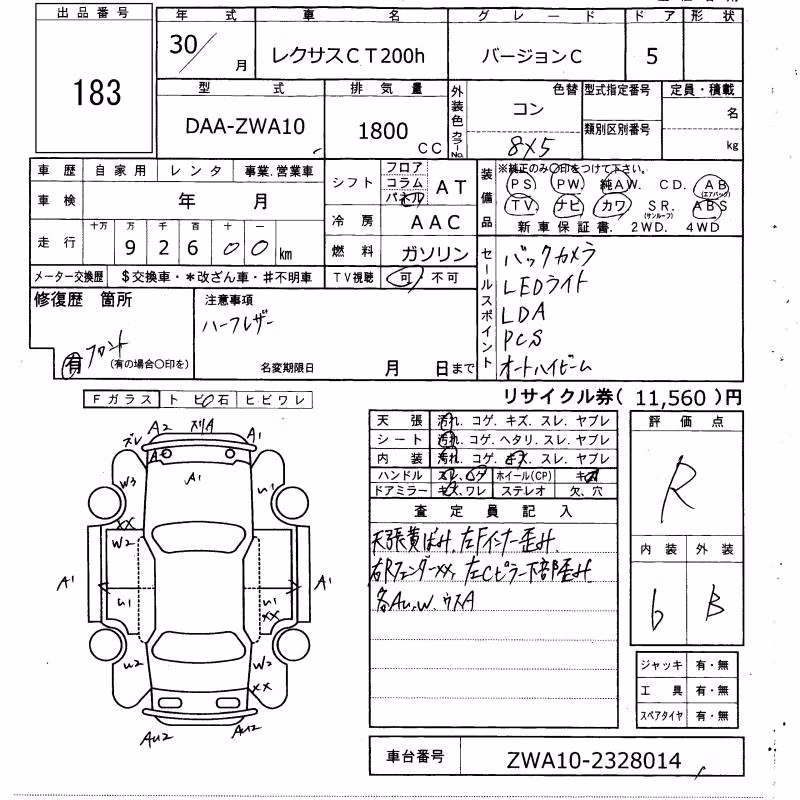 出品番号
183
年 式
30/ 月
車 名
レクサスCT200h
グ レ ー ド
バージョンC
ド ア
5
形 状
型 式
DAA-ZWA10
排 気 量
1800 CC
外装色 カラーNo.
色替
コン
8X5
型式指定番号
類別区別番号
定員・積載
名
kg
車 歴 自 家 用 レ ン タ 事業.営業車
車 検 年 月
走 行 十万 万 千 百 十 一
9 2 6 0 0 km
メーター交換歴 $交換車・*改ざん車・#不明車
シフト フロア コラム パネル AT
冷 房 AAC
燃 料 ガソリン
TV視聴 可 不可
装備品
※純正のみ○印をつけて下さい。
PS PW 純AW. CD. AB (エアバック)
TV ナビ カワ SR. (サンルーフ) ABS
新車保証書. 2WD. 4WD
セールスポイント
バックカメラ
LEDライト
LDA
PCS
オートハイビーム
修復歴 箇所
有 フロント
(有の場合○印を)
注意事項
ハーフレザー
名変期限日 月 日まで
リサイクル券( 11,560 )円
Fガラス ト ビ 石 ヒ ビ ワ レ
A2 スリA A1
ズレ A A1
W3 U1
XX
W2
A1 A1
U1 U1
XX
U2 W2
XX
AU2 AU2
天 張 汚れ. コゲ. キズ. スレ. ヤブレ
シ ー ト 汚れ. コゲ. ヘタリ. スレ. ヤブレ
内 装 汚れ. コゲ. キズ. スレ. ヤブレ
ハンドル スレ、 ホイール(CP) キズ
ドアミラー キズ、ワレ ステレオ 欠、穴
査 定 員 記 入
天張黄ばみ、左Fインナー歪み、
右Rフェンダーxx、左Cピラー下部歪み、
各AU、W、ウスA
評 価 点
R
内 装 外 装
6 B
ジャッキ 有・無
工 具 有・無
スペアタイヤ 有・無
車台番号 ZWA10-2328014